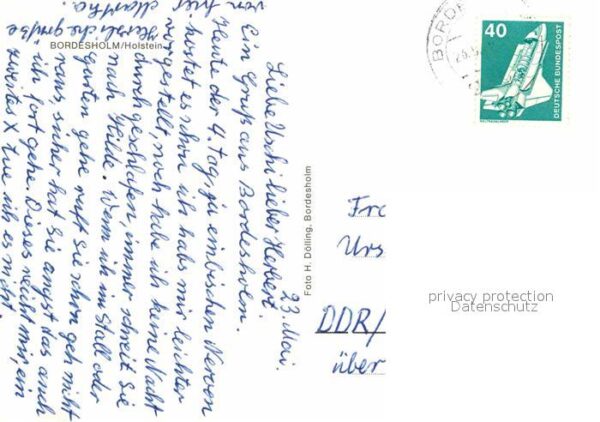 BORDESHOLM/Holstein
23. Mai.
Liebe Uschi lieber Herbert.
Ein Gruß aus Bordesholm.
Heute der 4. Tag, ja ein bischen Nerven
kostet es schon ich habs mir leichter
vorgestellt, noch habe ich keine Nacht
durchgeschlafen, immer schreit sie
nach Hilde. Wenn ich im Stall oder
Garten gehe ruft sie schon geh nicht
raus, sicher hat sie angst das auch
ich fort gehe. Dieses reicht mir, ein
zweites X tue ich es nicht.
Herzliche grüße
von hier Martha.
Foto H. Dölling, Bordesholm
BORDE
40
DEUTSCHE BUNDESPOST
Urs
DDR/
über
privacy protection
Datenschutz